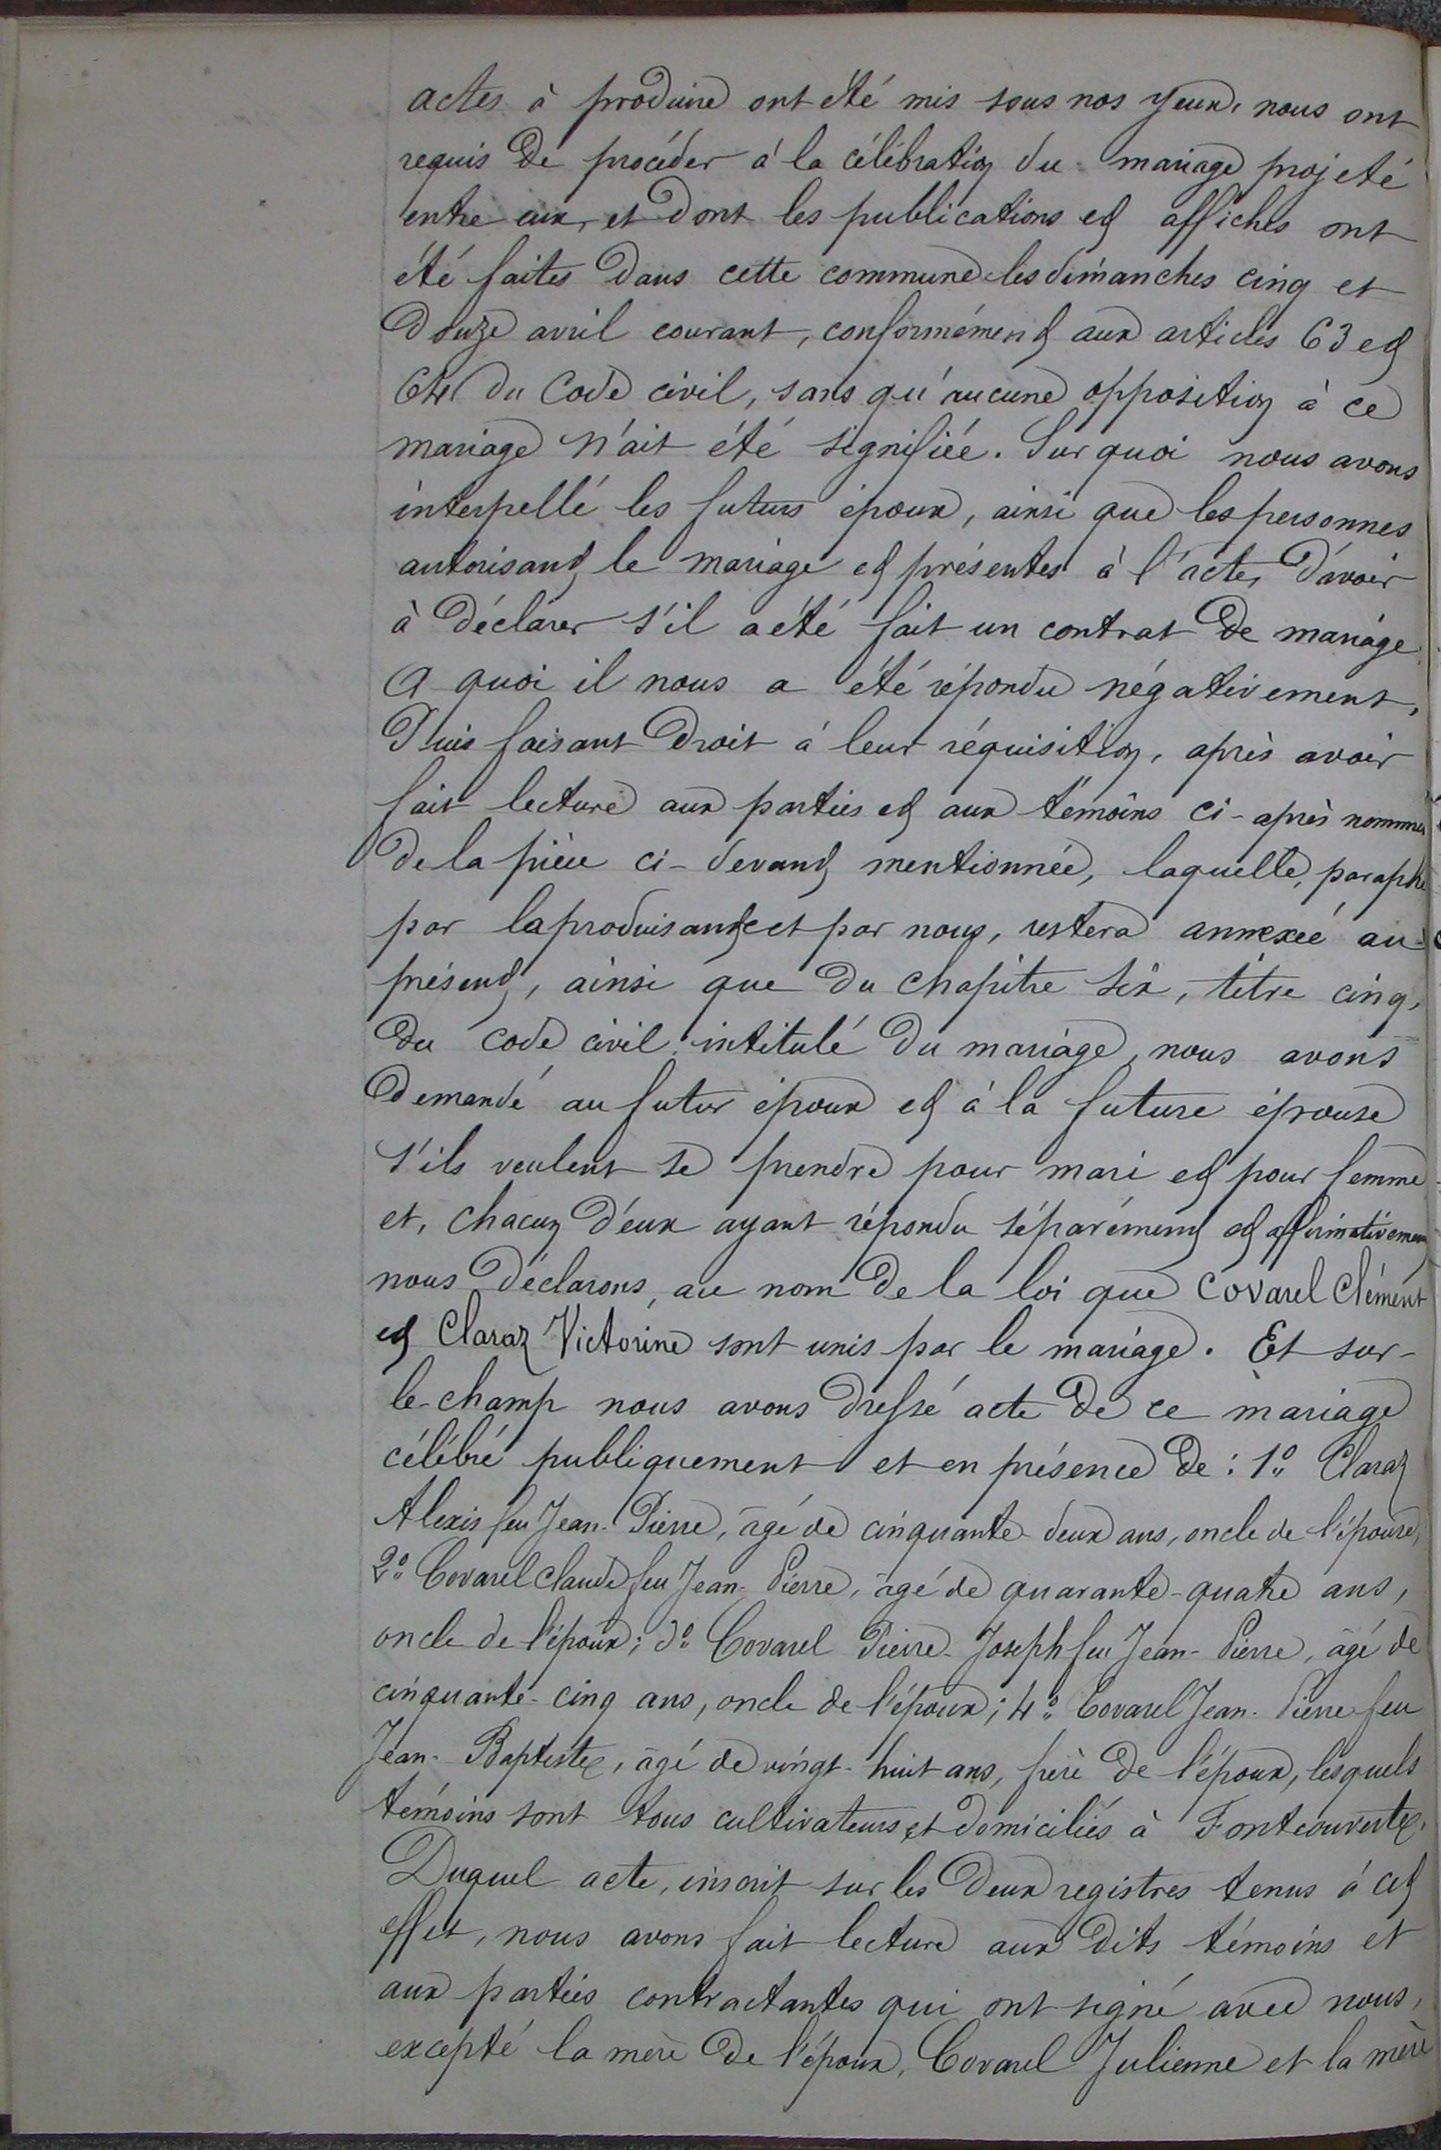 actes à produire ont été mis sous nos yeux, nous ont
requis de procéder à la célébration du mariage projeté
entre eux, et dont les publications et affiches ont
été faites dans cette commune les dimanches cinq et
douze avril courant, conformément aux articles 63 et
64 du Code civil, sans qu'aucune opposition à ce
mariage n'ait été signifiée. Sur quoi nous avons
interpellé les futurs époux, ainsi que les personnes
autorisant le mariage et présentes à l'acte, d'avoir
à déclarer s'il a été fait un contrat de mariage.
A quoi il nous a été répondu négativement,
Puis faisant droit à leur réquisition, après avoir
fait lecture aux parties et aux témoins ci-après nommés
de la pièce ci-devant mentionnée, laquelle, paraphé
par la produisante et par nous, restera annexée au
présent, ainsi que du chapitre six, titre cinq,
du code civil intitulé du mariage, nous avons
demandé au futur époux et à la future épouse
s'ils veulent se prendre pour mari et pour femme
et, chacun d'eux ayant répondu séparément et affirmativement
nous déclarons, au nom de la loi que Covarel Clément
et Claraz Victorine sont unis par le mariage. Et sur-
le-champ nous avons dressé acte de ce mariage
célébré publiquement et en présence de : 1º Claraz
Alexis feu Jean-Pierre, âgé de cinquante-deux ans, oncle de l'épouse,
2º Covarel Claude feu Jean-Pierre, âgé de quarante-quatre ans,
oncle de l'époux; 3º Covarel Pierre-Joseph feu Jean-Pierre, âgé de
cinquante-cinq ans, oncle de l'époux; 4º Covarel Jean-Pierre feu
Jean-Baptiste, âgé de vingt-huit ans, frère de l'époux, lesquels
témoins sont tous cultivateurs et domiciliés à Fontcouverte.
Duquel acte, inscrit sur les deux registres tenus à cet
effet, nous avons fait lecture aux dits témoins et
aux parties contractantes qui ont signé avec nous,
excepté la mère de l'époux, Covarel Julienne et la mère